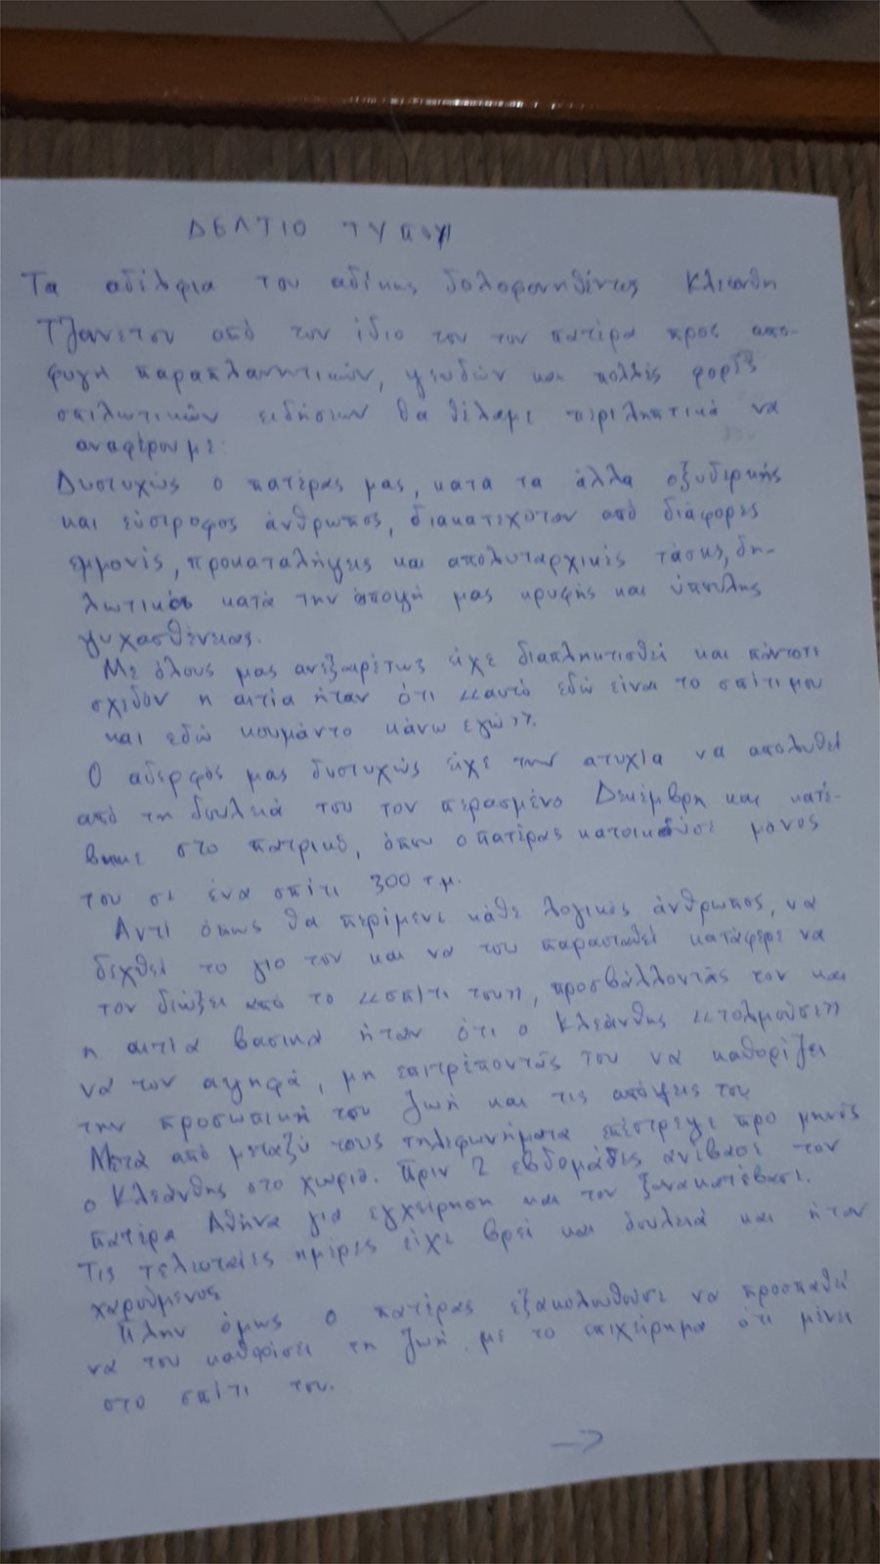 ΔΕΛΤΙΟ ΤΥΠΟΥ
Τα αδέλφια του αδίκως δολοφονηθέντως Κλεάνθη
Τζανέτου από τον ίδιο του τον πατέρα προς απο-
φυγή παραπλανητικών, ψευδών και πολλές φορές
σπιλωτικών ειδήσεων θα θέλαμε περιληπτικά να
αναφέρουμε:
Δυστυχώς ο πατέρας μας, κατά τα άλλα οξυδερκής
και εύστροφος άνθρωπος, διακατεχόταν από διάφορες
εμμονές, προκαταλήψεις και απολυταρχικές τάσεις, δη-
λωτικές κατά την άποψή μας κρυφής και ύπουλης
ψυχασθένειας.
Με όλους μας ανεξαιρέτως είχε διαπληκτισθεί και πάντοτε
σχεδόν η αιτία ήταν ότι «αυτό εδώ είναι το σπίτι μου
και εδώ κουμάντο κάνω εγώ».
Ο αδερφός μας δυστυχώς είχε την ατυχία να απολυθεί
από τη δουλειά του τον περασμένο Δεκέμβρη και κατέ-
βηκε στο πατρικό, όπου ο πατέρας κατοικούσε μόνος
του σε ένα σπίτι 300 τ.μ.
Αντί όπως θα περίμενε κάθε λογικός άνθρωπος, να
δεχθεί το γιο του και να του παρασταθεί κατάφερε να
τον διώξει από το «σπίτι του», προσβάλλοντάς τον και
η αιτία βασικά ήταν ότι ο Κλεάνθης «τολμούσε»
να τον αψηφά, μη επιτρέποντάς του να καθορίζει
την προσωπική του ζωή και τις απόψεις του
Μετά από μεταξύ τους τηλεφωνήματα επέστρεψε προ μηνός
ο Κλεάνθης στο χωριό. Πριν 2 εβδομάδες ανέβασε τον
πατέρα Αθήνα για εγχείρηση και τον ξανακατέβασε.
Τις τελευταίες ημέρες είχε βρεί και δουλειά και ήταν
χαρούμενος
Πλην όμως ο πατέρας εξακολουθούσε να προσπαθεί
να του καθορίσει τη ζωή, με το επιχείρημα ότι μένει
στο σπίτι του.
→